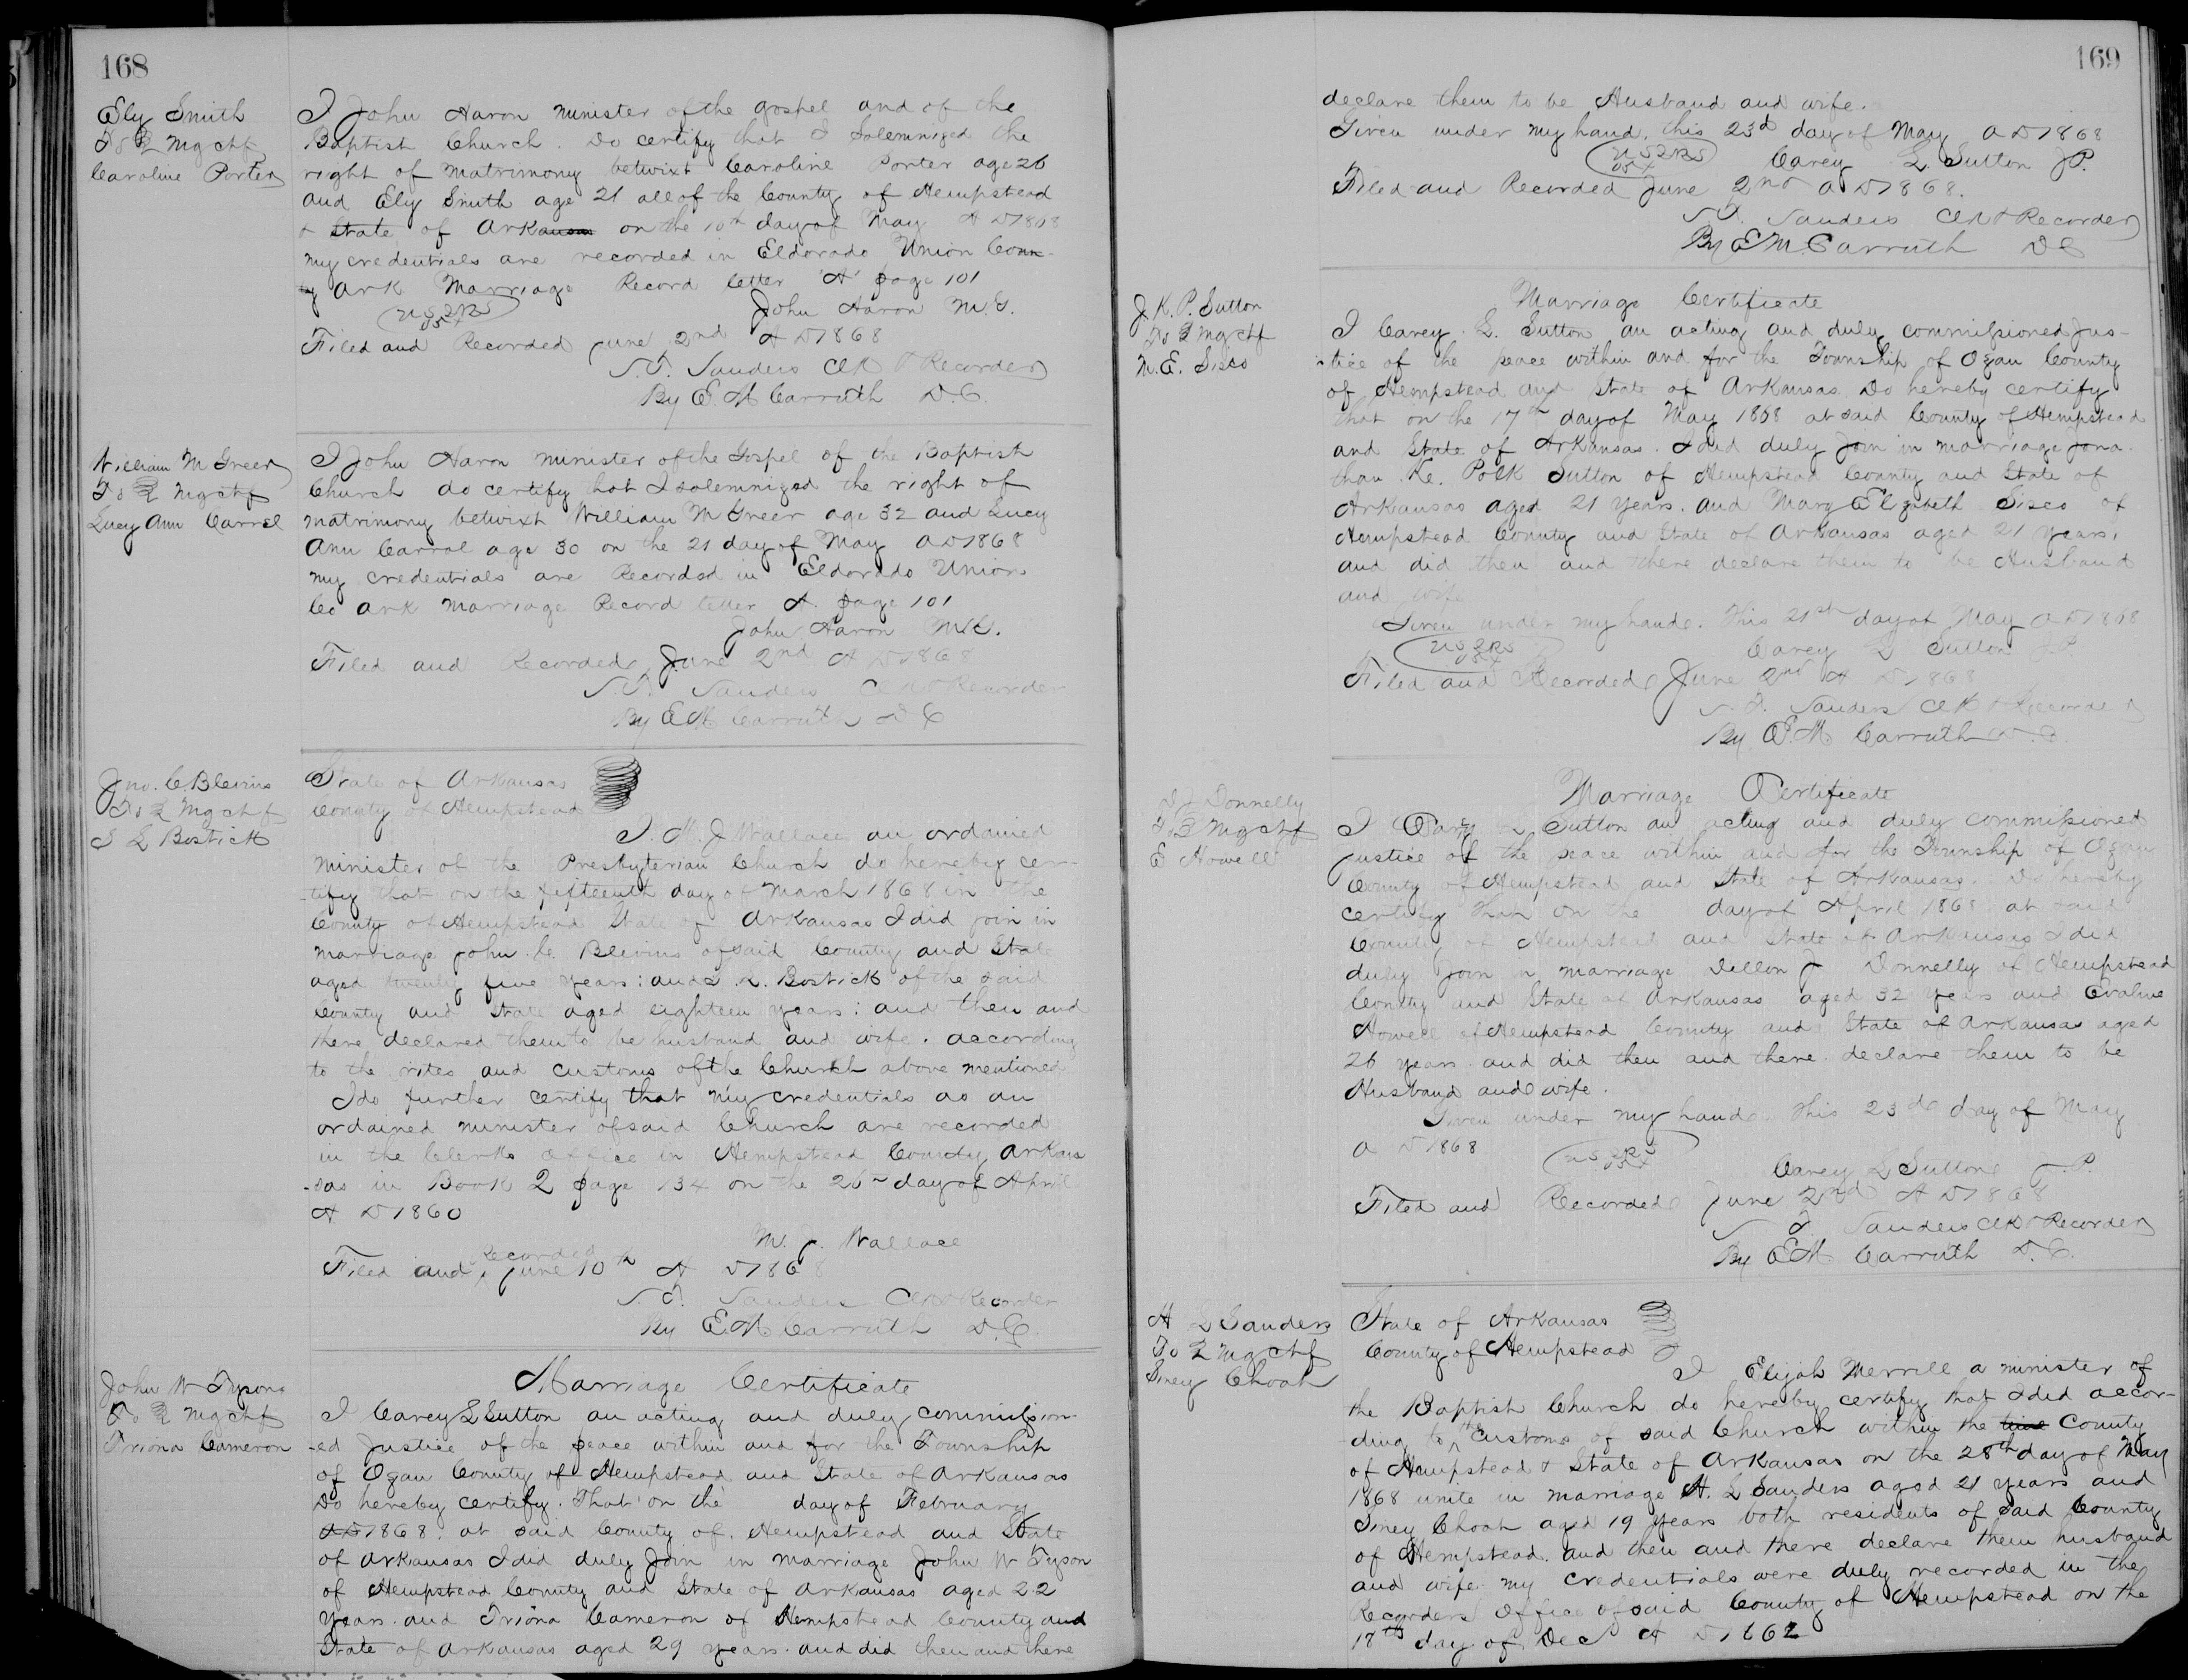 168
Ely Smith
To Mgctf
Caroline Porter
I John Aaron minister of the gospel and of the
Baptist Church. Do certify that I Solemnized the
right of matrimony betwixt Caroline Porter age 26
and Ely Smith age 21 all of the County of Hempstead
+ State of Arkansas on the 10th day of May A D 1868
my credentials are recorded in Eldorado Union Coun-
ty Ark Marriage Record letter "A" page 101
John Aaron M.G.
Filed and Recorded June 2nd A D 1868
Sanders Clk + Recorder
By E. M Carruth D.C.
William M Greer
To Mgctf
Lucy Ann Carrol
I John Aaron minister of the Gospel of the Baptist
Church do certify hat I solemnized the right of
matrimony betwixt William M Greer age 32 and Lucy
Ann Carrol age 30 on the 21 day of May A D 1868
my credentials are Recorded in Eldorado Union
Co Ark Marriage Record letter A. page 101
John Aaron M.G.
Filed and Recorded June 2nd A D 1868
Sanders Clk + Recorder
By E M Carruth D C
Jno. C Blevins
To Mgctf
S L Bostick
State of Arkansas
County of Hempstead
I. M. J Wallace an ordained
minister of the Presbyterian Church do hereby cer-
-tify that on the fifteenth day of March 1868 in the
County of Hempstead State of Arkansas I did join in
marriage John C. Blevins of said County and State
aged twenty five years: and S. L. Bostick of the said
County and State aged eighteen years: and then and
there declared them to be husband and wife. according
to the rites and customs of the Church above mentioned
I do further certify that my credentials as an
ordained minister of said Church are recorded
in the Clerks office in Hempstead County Arkan
-sas in Book 2 page 134 on the 26th day of April
A D 1860
M. J. Wallace
Filed and Recorded June 10th A D 1868
Sanders Clk + Recorder
By E. M Carruth D.C.
John W Tyson
To Mgctf
Triona Cameron
Marriage Certificate
I Carey L Sutton an acting and duly commission-
-ed Justice of the peace within and for the Township
of Ozan County of Hempstead and State of Arkansas
Do hereby certify. That on the day of February
A D 1868. at said County of Hempstead and State
of Arkansas I did duly Join in marriage John W Tyson
of Hempstead County and State of Arkansas aged 22
years. and Triona Cameron of Hempstead County and
State of Arkansas aged 29 years. and did then and there
169
declare them to be Husband and wife.
Given under my hand. this 23d day of May A D 1868
Carey L Sutton JP.
Filed and Recorded June 2nd A D 1868.
Sanders Clk + Recorder
By E M. Carruth D C
J. K. P. Sutton
To Mgctf
M. E. Sisco
Marriage Certificate
I Carey L. Sutton an acting and duly commissioned Jus-
-tice of the peace within and for the Township of Ozan County
of Hempstead and State of Arkansas. Do hereby certify
that on the 17th day of May 1868 at said County of Hempstead
and State of Arkansas. I did duly Join in marriage Jona-
than Ke. Polk Sutton of Hempstead County and State of
Arkansas aged 21 years. and Mary Elizabeth Sisco of
Hempstead County and State of Arkansas aged 21 years,
and did then and there declare them to be Husband
and wife
Given under my hand. This 21st day of May A D 1868
Carey L Sutton JP
Filed and Recorded June 2nd A D 1868
Sanders Clk + Recorder
By E. M Carruth D.C.
D J Donnelly
To Mgctf
E Howell
Marriage Certificate
I Cary L Sutton an acting and duly commissioned
Justice of the peace within and for the Township of Ozan
County of Hempstead and State of Arkansas. Do hereby
certify that on the day of April 1868 at said
County of Hempstead and State of Arkansas I did
duly Join in marriage Dellon J Donnelly of Hempstead
County and State of Arkansas aged 32 years and Evaline
Howell of Hempstead County and State of Arkansas aged
26 years. and did then and there declare them to be
Husband and wife.
Given under my hand. this 23d day of May
A D 1868
Carey L Sutton J.P.
Filed and Recorded June 2nd A D 1868
Sanders Clk + Recorder
By E M Carruth D.C.
H L Sanders
To Mgctf
Siney Choah
State of Arkansas
County of Hempstead
I Elijah Merrill a minister of
the Baptist Church do hereby certify that I did accor-
ding to the customs of said Church within the time County
of Hempstead + State of Arkansas on the 28th day of May
1868 unite in marriage H. L Sanders aged 21 years and
Siney Choah aged 19 years both residents of said County
of Hempstead. and then and there declare them husband
and wife. my credentials were duly recorded in the
Recorders Office of said County of Hempstead on the
18th day of Dec A D 1862